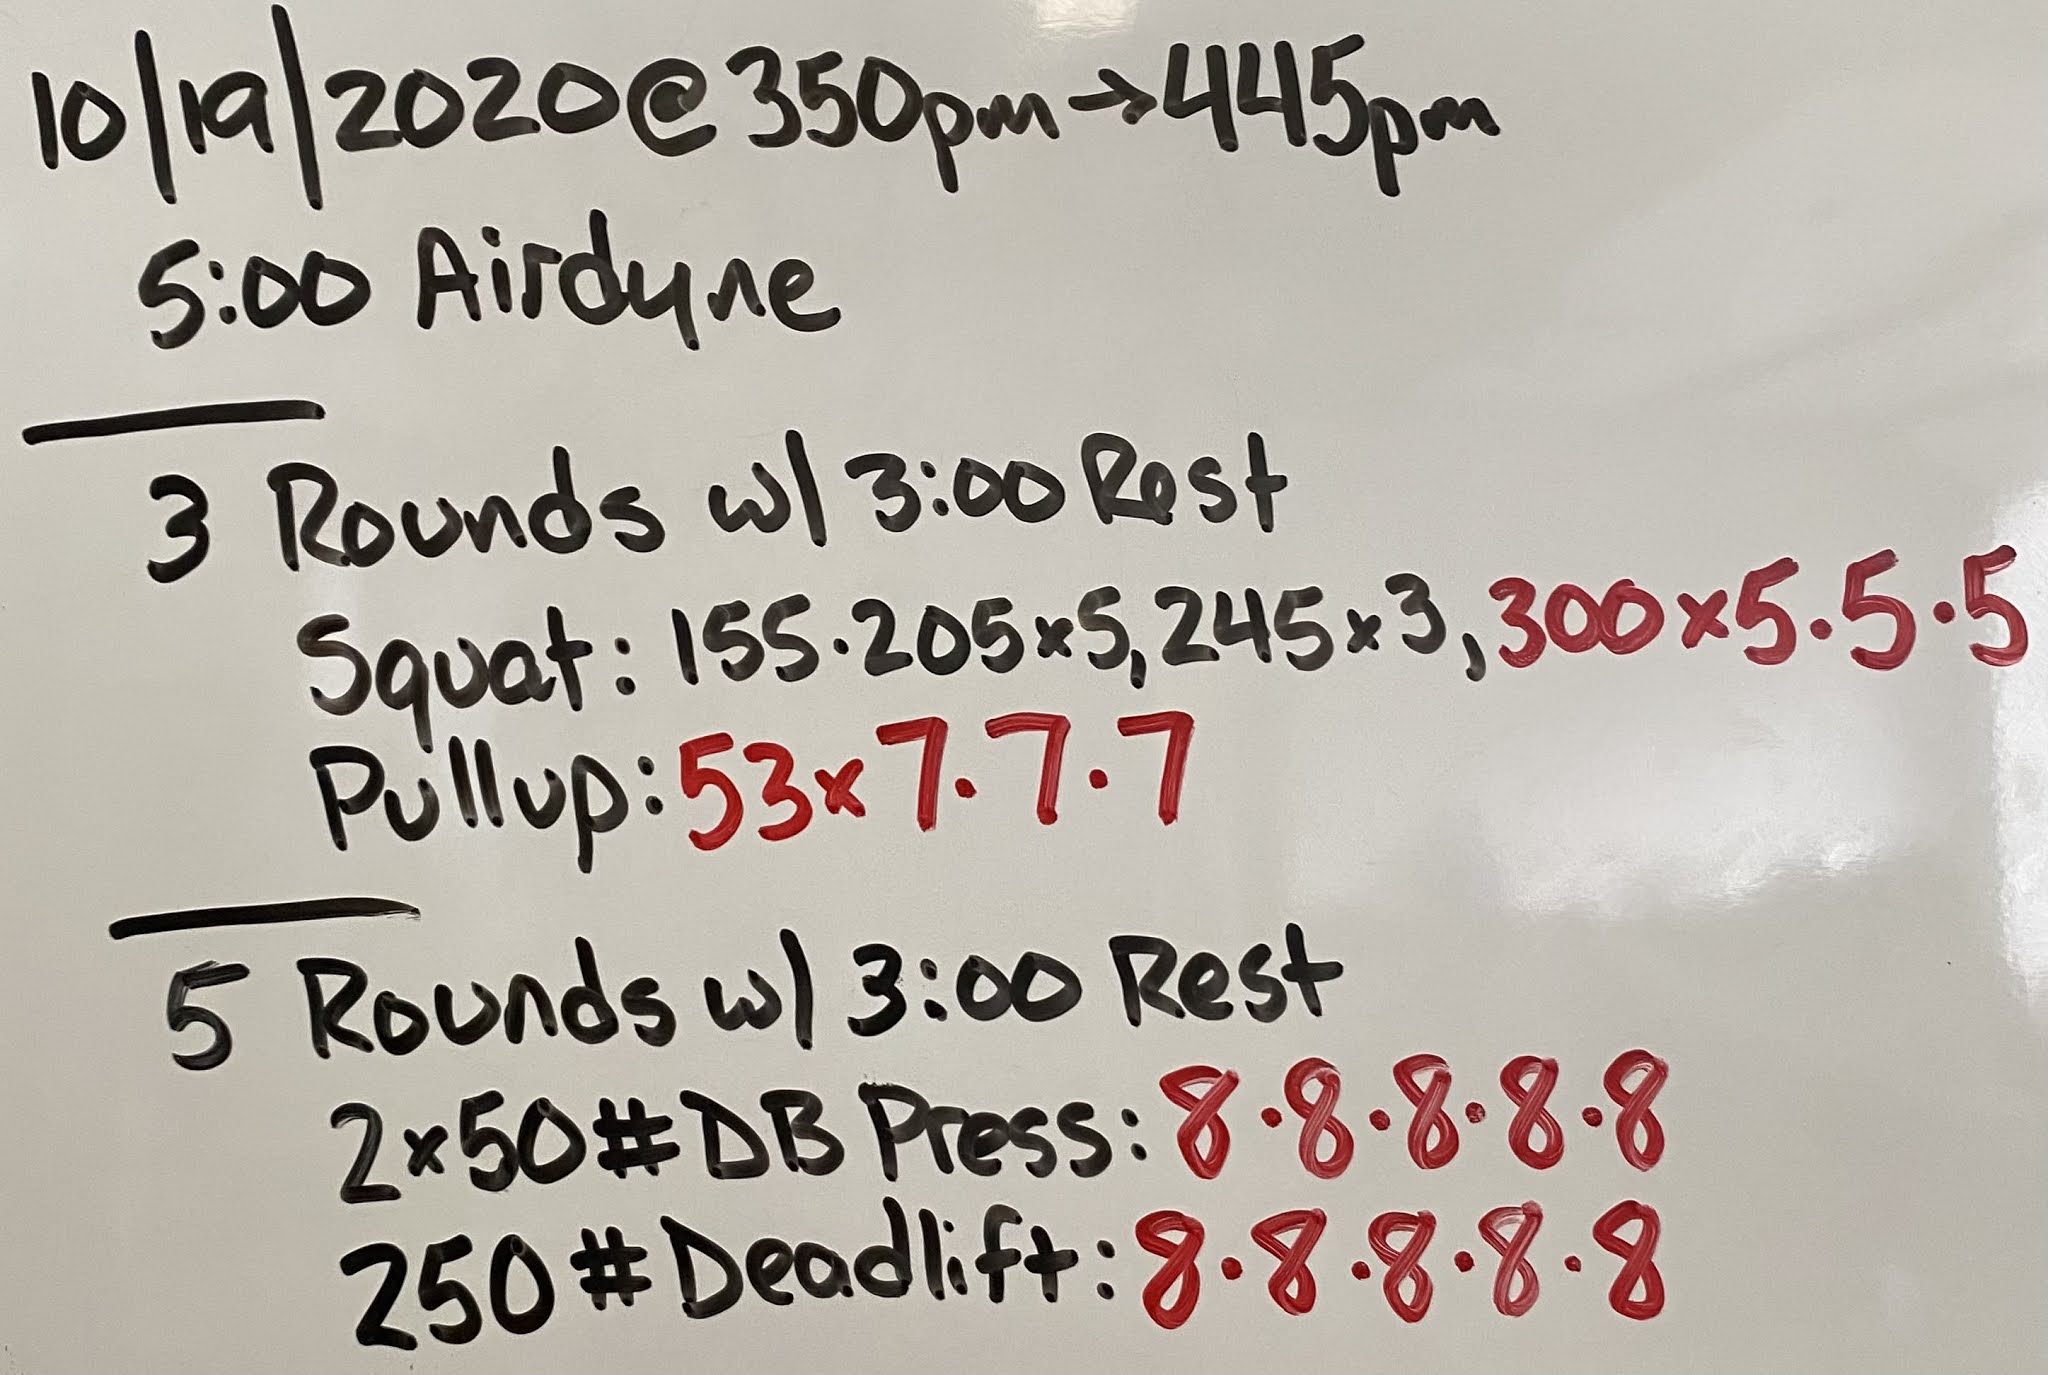 10/19/2020@350pm→445pm
5:00 Airdyne
3 Rounds w/ 3:00 Rest
Squat: 155·205x5, 245x3, 300x5·5·5
Pullup: 53x7·7·7
5 Rounds w/ 3:00 Rest
2x50# DB Press: 8·8·8·8·8
250# Deadlift: 8·8·8·8·8